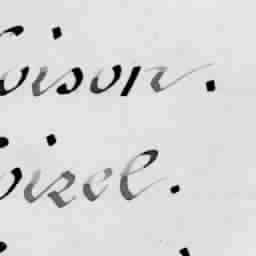 oison.
oizel.